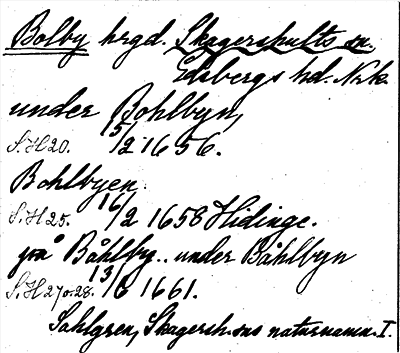 Bolby hrgd. Skagershults sn.
Edsbergs hd. Nrk.
under Bohlbyn,
S.H 20. 15/2 1656.
Bohlbyen.
S.H 25. 16/2 1658 Hidinge.
på Båhlby.. under Båhlbyn
S.H 27 o. 28. 13/6 1661.
Sahlgren, Skagersh. sns naturnamn. I.